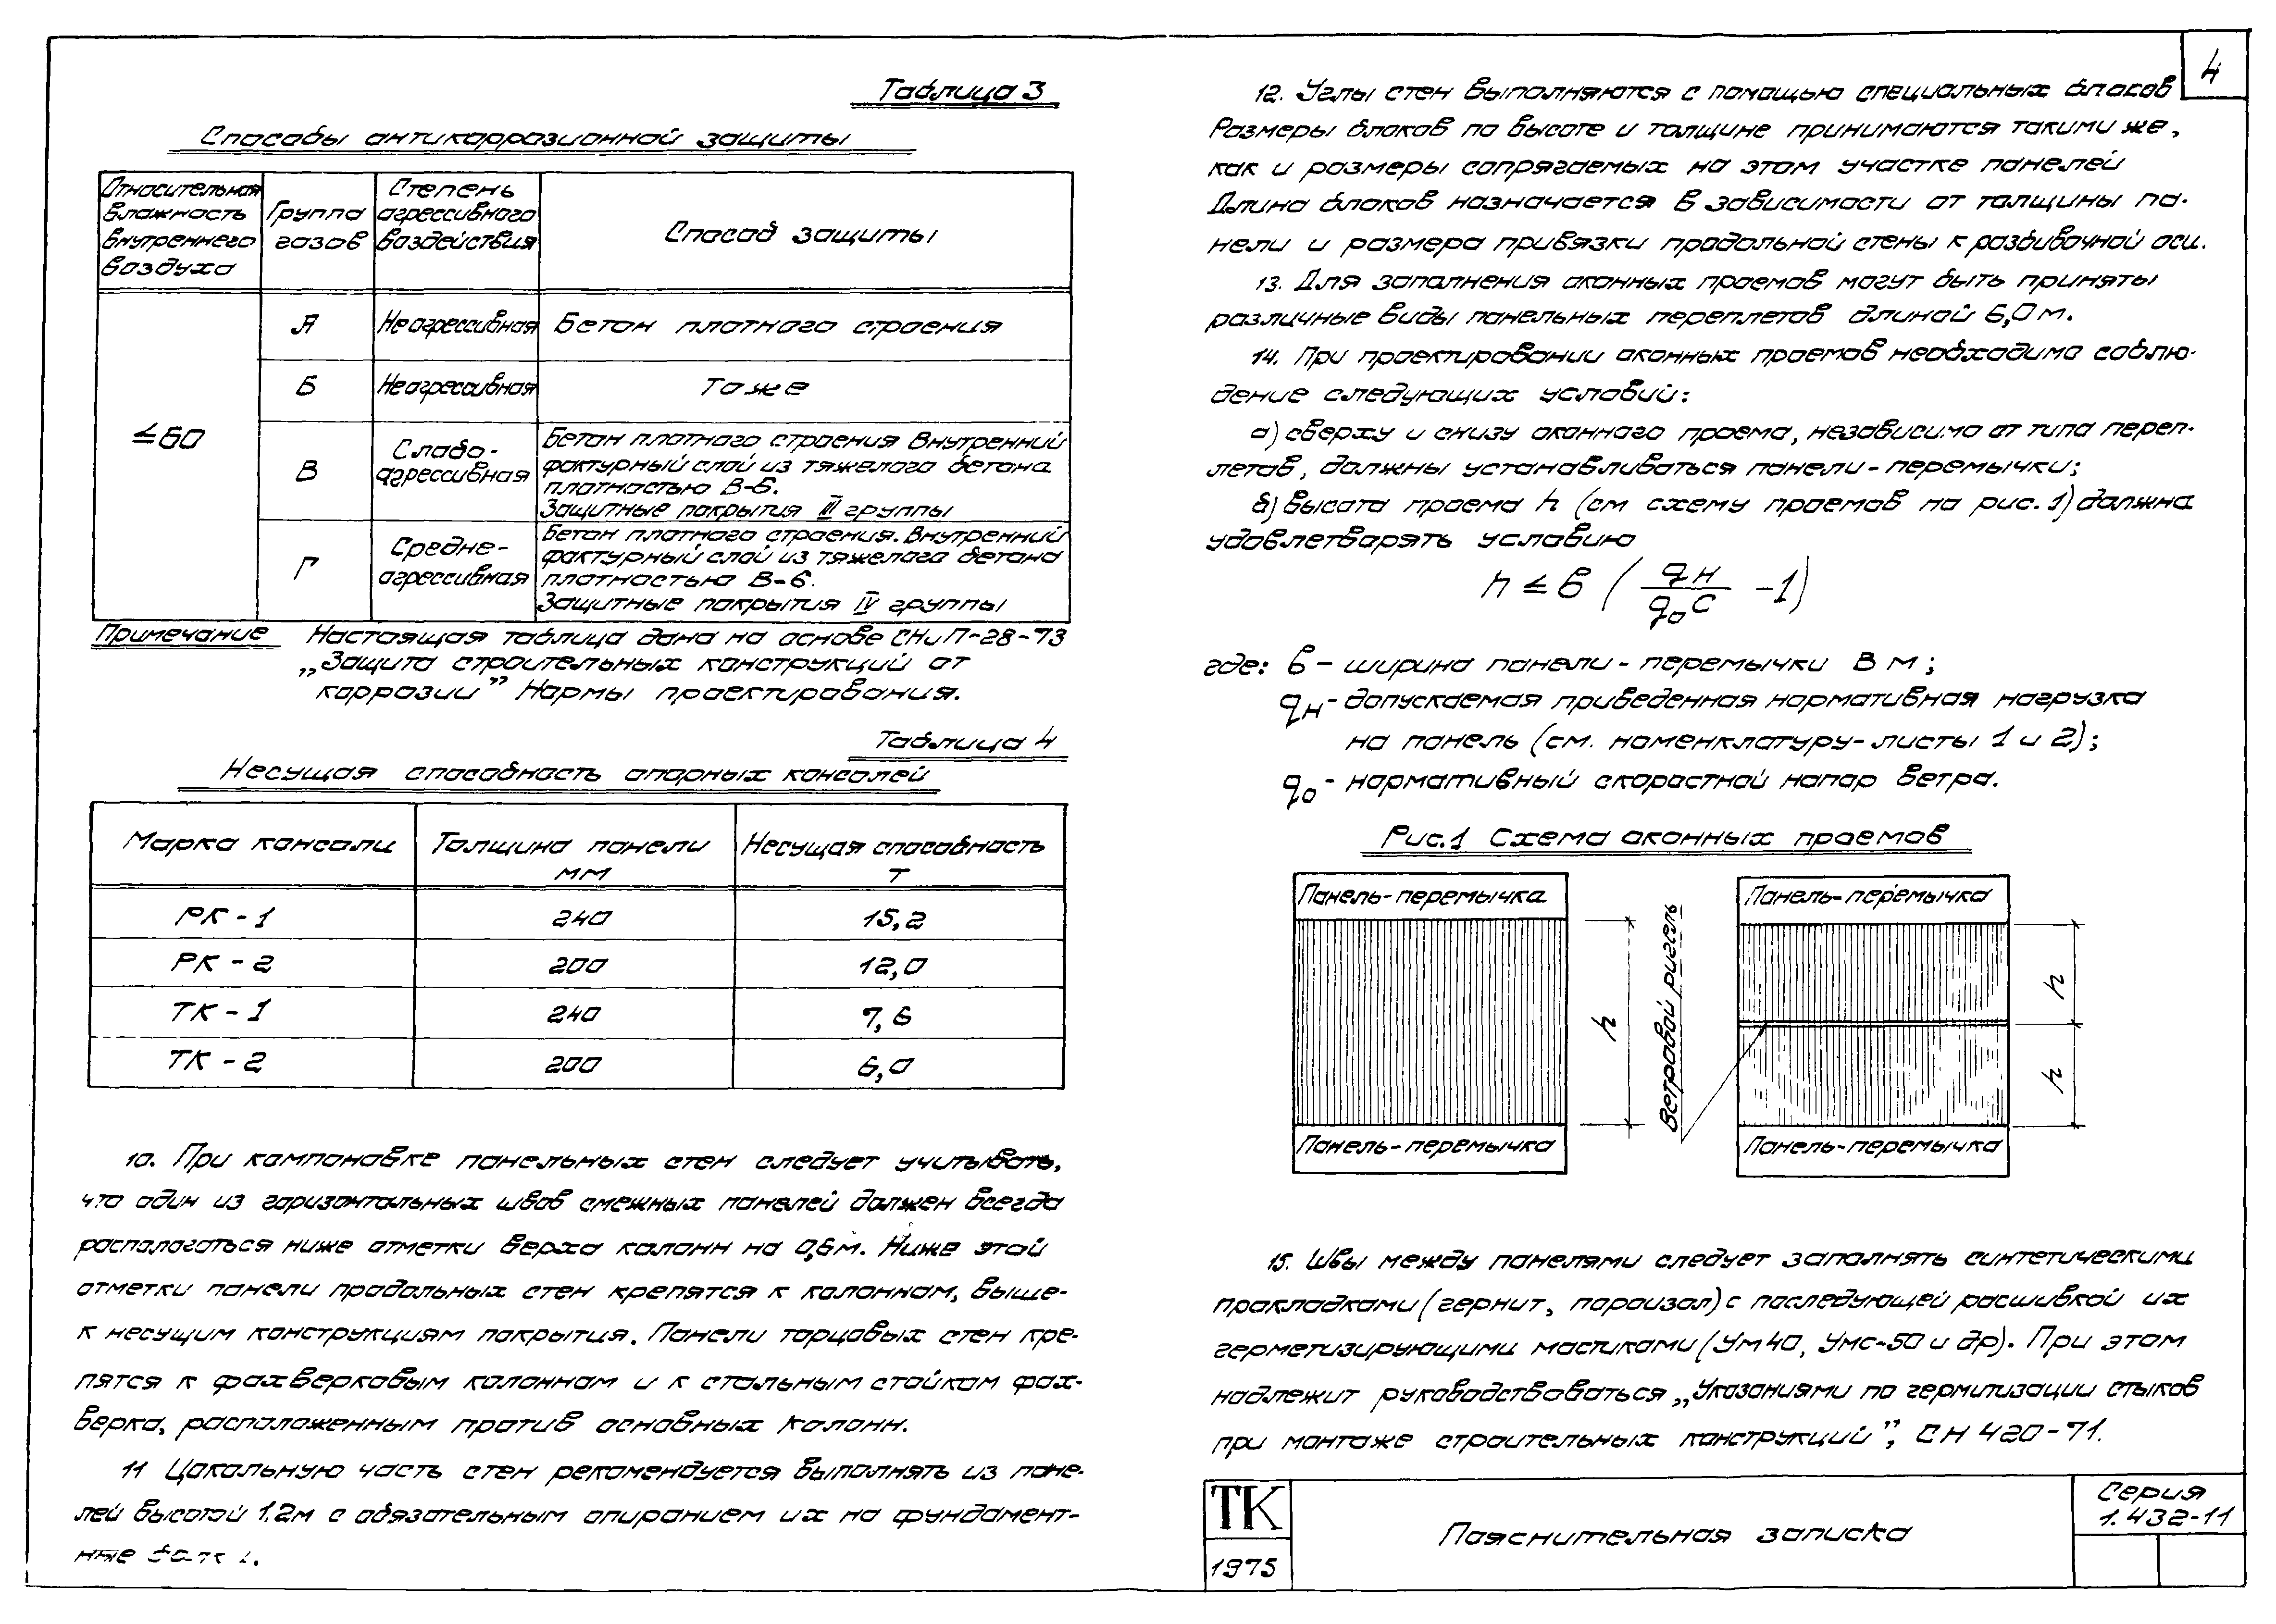 4
Таблица 3
Способы антикоррозионной защиты
Относительная влажность внутреннего воздуха | Группа газов | Степень агрессивного воздействия | Способ защиты
≤60
А | Неагрессивная | Бетон плотного строения
Б | Неагрессивная | То же
В | Слабо-агрессивная | Бетон плотного строения Внутренний
фактурный слой из тяжелого бетона
плотностью В-6.
Защитные покрытия III группы
Г | Средне-агрессивная | Бетон плотного строения. Внутренний
фактурный слой из тяжелого бетона
плотностью В-6.
Защитные покрытия IV группы
Примечание Настоящая таблица дана на основе СНиП-28-73
„Защита строительных конструкций от
коррозии” Нормы проектирования.
Таблица 4
Несущая способность опорных консолей
Марка консоли | Толщина панели мм | Несущая способность т
РК-1 | 240 | 15,2
РК-2 | 200 | 12,0
ТК-1 | 240 | 7,6
ТК-2 | 200 | 6,0
10. При компоновке панельных стен следует учитывать,
что один из горизонтальных швов смежных панелей должен всегда
располагаться ниже отметки верха колонн на 0,6м. Ниже этой
отметки панели продольных стен крепятся к колоннам, выше-
к несущим конструкциям покрытия. Панели торцовых стен кре-
пятся к фахверковым колоннам и к стальным стойкам фах-
верка, расположенным против основных колонн.
11 Цокольную часть стен рекомендуется выполнять из пане-
лей высотой 1.2м с обязательным опиранием их на фундамент-
ные
12. Углы стен выполняются с помощью специальных блоков
Размеры блоков по высоте и толщине принимаются такими же,
как и размеры сопрягаемых на этом участке панелей
Длина блоков назначается в зависимости от толщины па-
нели и размера привязки продольной стены к разбивочной оси.
13. Для заполнения оконных проемов могут быть приняты
различные виды панельных переплетов длиной 6,0м.
14. При проектировании оконных проемов необходимо соблю-
дение следующих условий:
а) сверху и снизу оконного проема, независимо от типа переп-
летов, должны устанавливаться панели-перемычки;
б) высота проема h (см схему проемов на рис. 1) должна
удовлетворять условию
h ≤ в ( qн / q₀ c -1)
где: в - ширина панели-перемычки в м;
qн - допускаемая приведенная нормативная нагрузка
на панель (см. номенклатуру-листы 1 и 2);
q₀ - нормативный скоростной напор ветра.
Рис.1 Схема оконных проемов
Панель-перемычка
h
Панель-перемычка
Ветровой ригель
Панель-перемычка
h
h
Панель-перемычка
15. Швы между панелями следует заполнять синтетическими
прокладками (гернит, пороизол) с последующей расшивкой их
герметизирующими мастиками (Ум40, Умс-50 и др). При этом
надлежит руководствоваться „Указаниями по гермитизации стыков
при монтаже строительных конструкций”, СН 420-71.
ТК
1975
Пояснительная записка
Серия
1.432-11